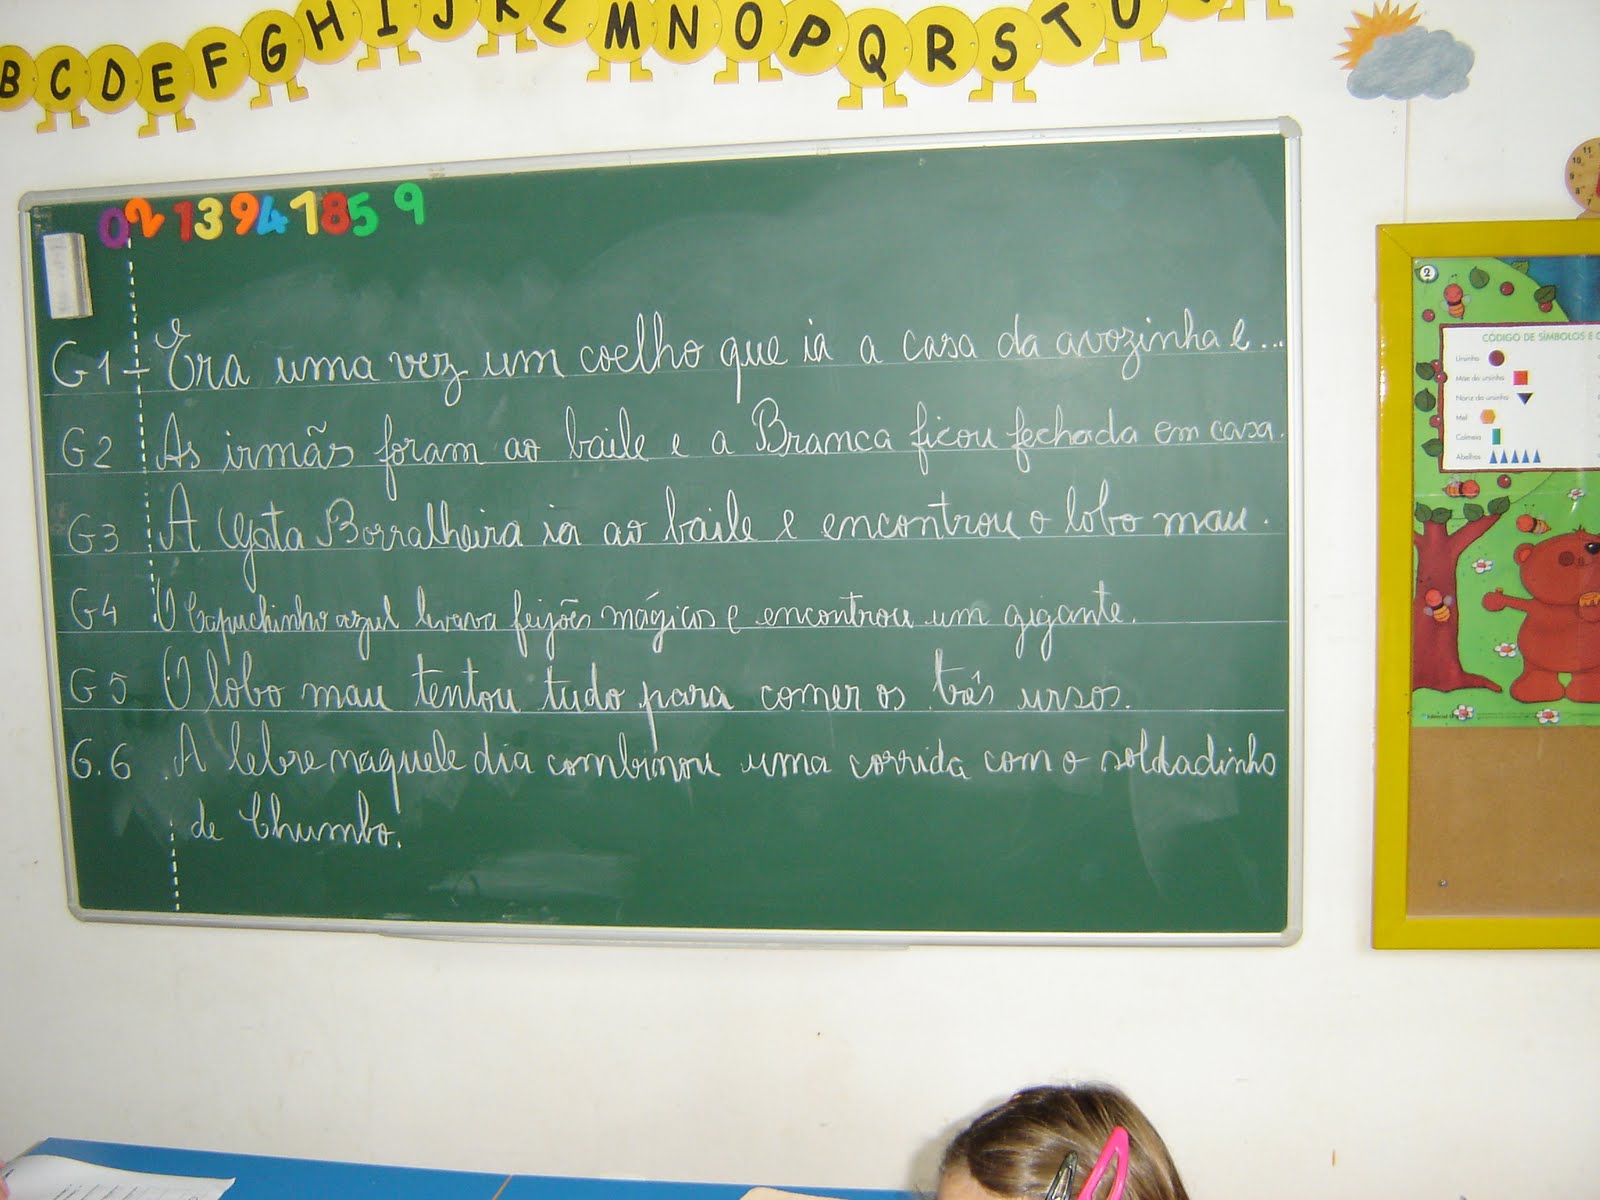 B C D E F G H I J K L M N O P Q R S T U
0 2 1 3 9 4 1 8 5 9
G1 - Era uma vez um coelho que ia a casa da avozinha e...
G2 As irmãs foram ao baile e a Branca ficou fechada em casa.
G3 A Gata Borralheira ia ao baile e encontrou o lobo mau.
G4 O Capuchinho azul levava feijões mágicos e encontrou um gigante.
G5 O lobo mau tentou tudo para comer os três ursos.
G.6 A lebre naquele dia combinou uma corrida com o soldadinho
de Chumbo.
2
CÓDIGO DE SÍMBOLOS E
Ursinho
Mãe do ursinho
Nariz do ursinho
Mel
Colmeia
Abelhas
11
10
9
8
7